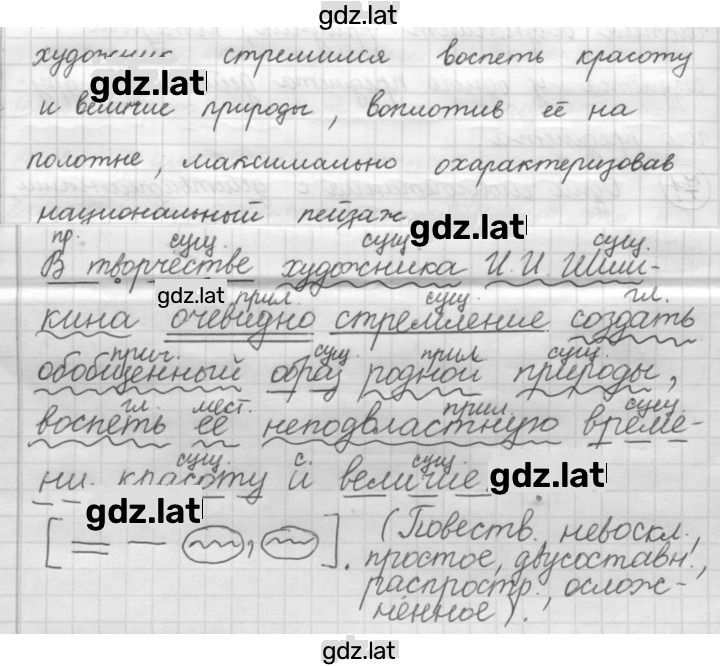 gdz.latl
художник стремился воспеть красоту
gdz.latl
и величие природы, воплотив её на
полотне, максимально охарактеризовав
национальный пейзаж
gdz.latl
пр. сущ. сущ. сущ.
В творчестве художника И.И. Шиш-
gdz.latl прил. сущ. гл.
кина очевидно стремление создать
прич. сущ. прил сущ.
обобщенный образ родной природы,
гл. мест. прил. сущ.
воспеть её неподвластную време-
сущ. с. сущ.
ни красоту и величие
gdz.latl
gdz.latl
[ , ]. (Повеств., невоскл.,
простое, двусоставн.,
распростр., ослож-
нённое).
gdz.latl